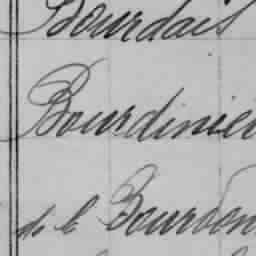 Bourdais
Bourdinier
de le Bourdon